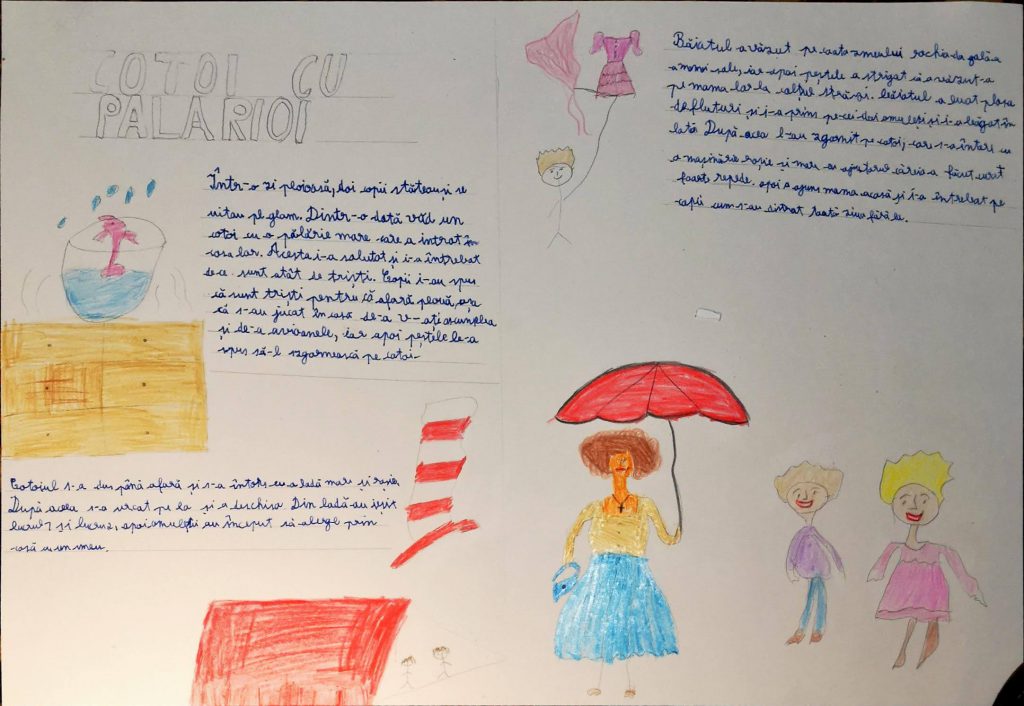 COTOI CU
PALARIOI
Într-o zi ploioasă, doi copii stăteau și se
uitau pe geam. Dintr-o dată văd un
cotoi cu o pălărie mare care a intrat în
casa lor. Acesta i-a salutat și i-a întrebat
de ce sunt atât de triști. Copii i-au spus
că sunt triști pentru că afară plouă, așa
că s-au jucat în casă de-a v-ați ascunselea
și de-a avioanele, iar apoi peștele le-a
spus să-l izgonească pe cotoi.
Cotoiul s-a dus până afară și s-a întors cu o ladă mare și roșie.
După aceea s-a urcat pe la și a deschis-o. Din ladă au ieșit
lucrul 1 și lucrul 2, apoi omuleții au început să alerge prin
casă cu un zmeu.
Băiatul a văzut pe coada zmeului rochia de gală a
mamei sale, iar apoi peștele a strigat că a văzut-o
pe mama lor la colțul străzi. Băiatul a luat plasa
de fluturi și i-a prins pe cei doi omuleți și i-a băgat în
ladă. După aceea l-au izgonit pe cotoi, care s-a întors cu
o mașinărie roșie și mare cu ajutorul căreia a făcut curat
foarte repede. Apoi a ajuns mama acasă și i-a întrebat pe
copii cum s-au distrat toată ziua fără ea.